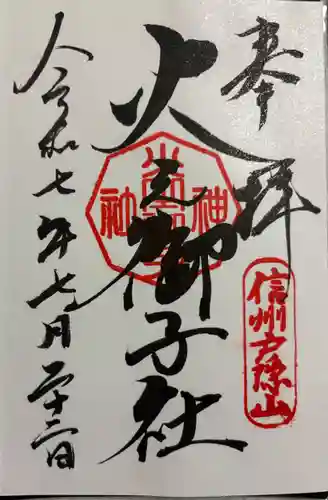 奉拝
信州戸隠山
火之御子社
令和七年七月二十二日